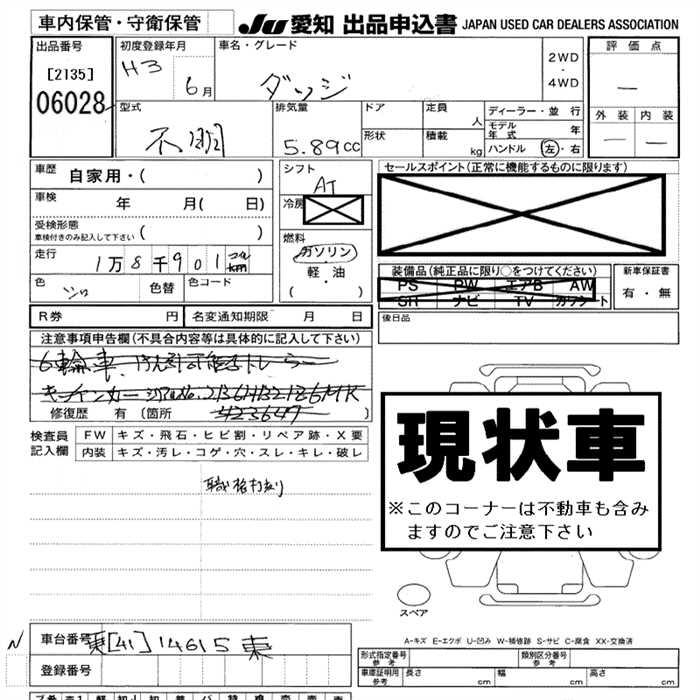 車内保管・守衛保管
JU 愛知 出品申込書 JAPAN USED CAR DEALERS ASSOCIATION
出品番号
[2135]
06028
初度登録年月
H3 6月
車名・グレード
ダッジ
2WD
・
4WD
評価点
—
外装 内装
— —
型式
不明
排気量
5.89cc
ドア
形状
定員
人
積載
kg
ディーラー・並行
モデル年式 年
ハンドル 左・右
車歴 自家用・( )
車検 年 月( 日)
受検形態
車検付きのみ記入して下さい ( )
走行 1万8千901 km
色 シロ 色替 色コード
シフト
AT
冷房
燃料
ガソリン
軽・油
( )
セールスポイント(正常に機能するものに限ります)
装備品(純正品に限り○をつけてください)
PS PW エアB AW
SR ナビ TV カワシート
新車保証書
有・無
後日品
R券 円 名変通知期限 月 日
注意事項申告欄(不具合内容等は具体的に記入して下さい)
6輪車
キッチンカー
修復歴 有 (箇所 423647 )
検査員
記入欄
FW キズ・飛石・ヒビ割・リペア跡・X要
内装 キズ・汚レ・コゲ・穴・スレ・キレ・破レ
職権打刻
現状車
※このコーナーは不動車も含み
ますのでご注意下さい
スペア
A-キズ E-エクボ U-凹み W-補修跡 S-サビ C-腐食 XX-交換済
車台番号 [41]14615東
登録番号
形式指定番号
参考
類別区分番号
参考
車庫証明用
参考
長さ cm 幅 cm 高さ cm